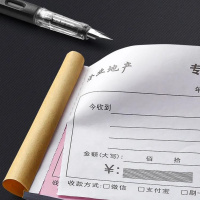 企业地产
专
年
今收到
金额(大写): 佰 拾
¥:
收款方式: □微信 □支付宝 □刷